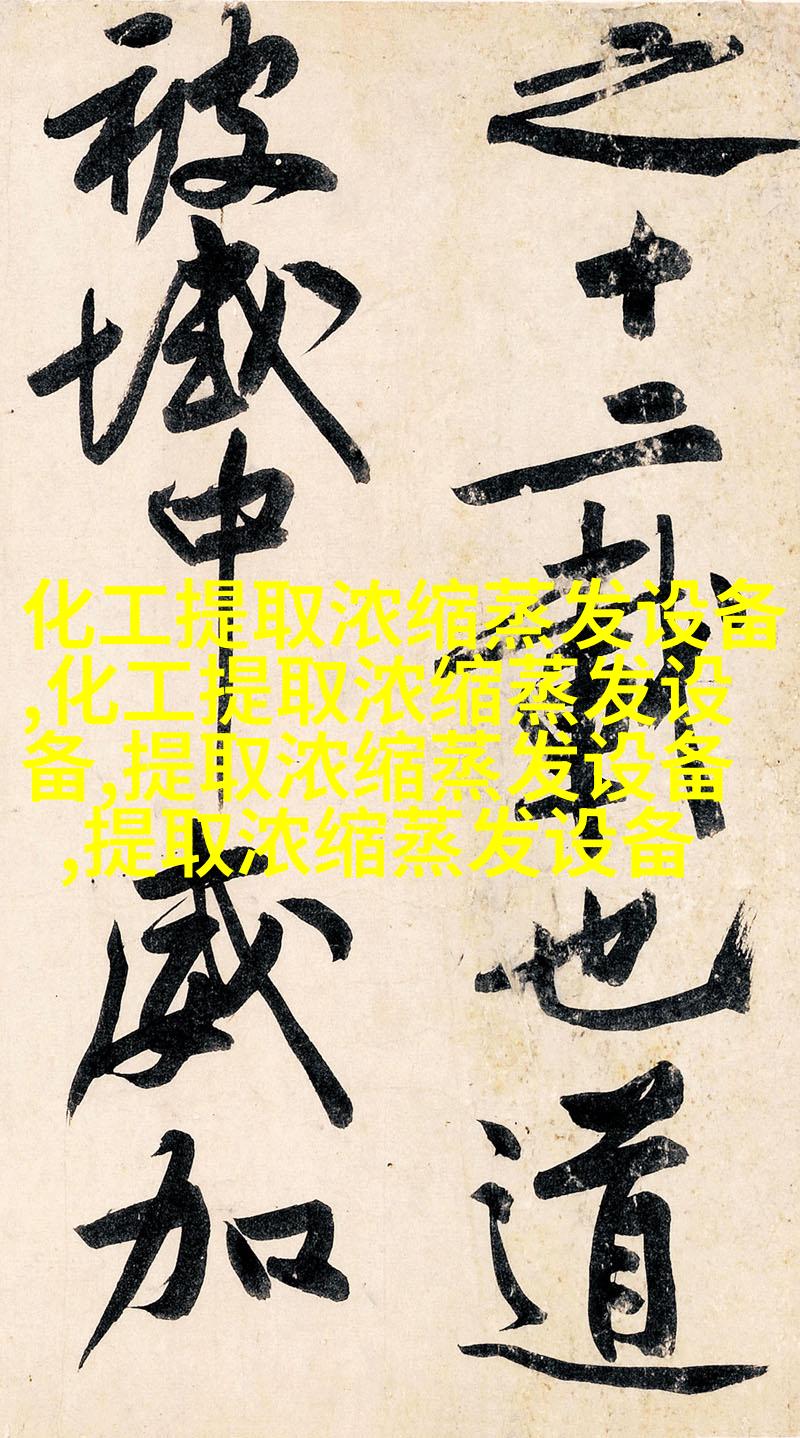 之十二載也道
被域中威加
化工提取浓缩蒸发设备
,化工提取浓缩蒸发设
备,提取浓缩蒸发设备
,提取浓缩蒸发设备